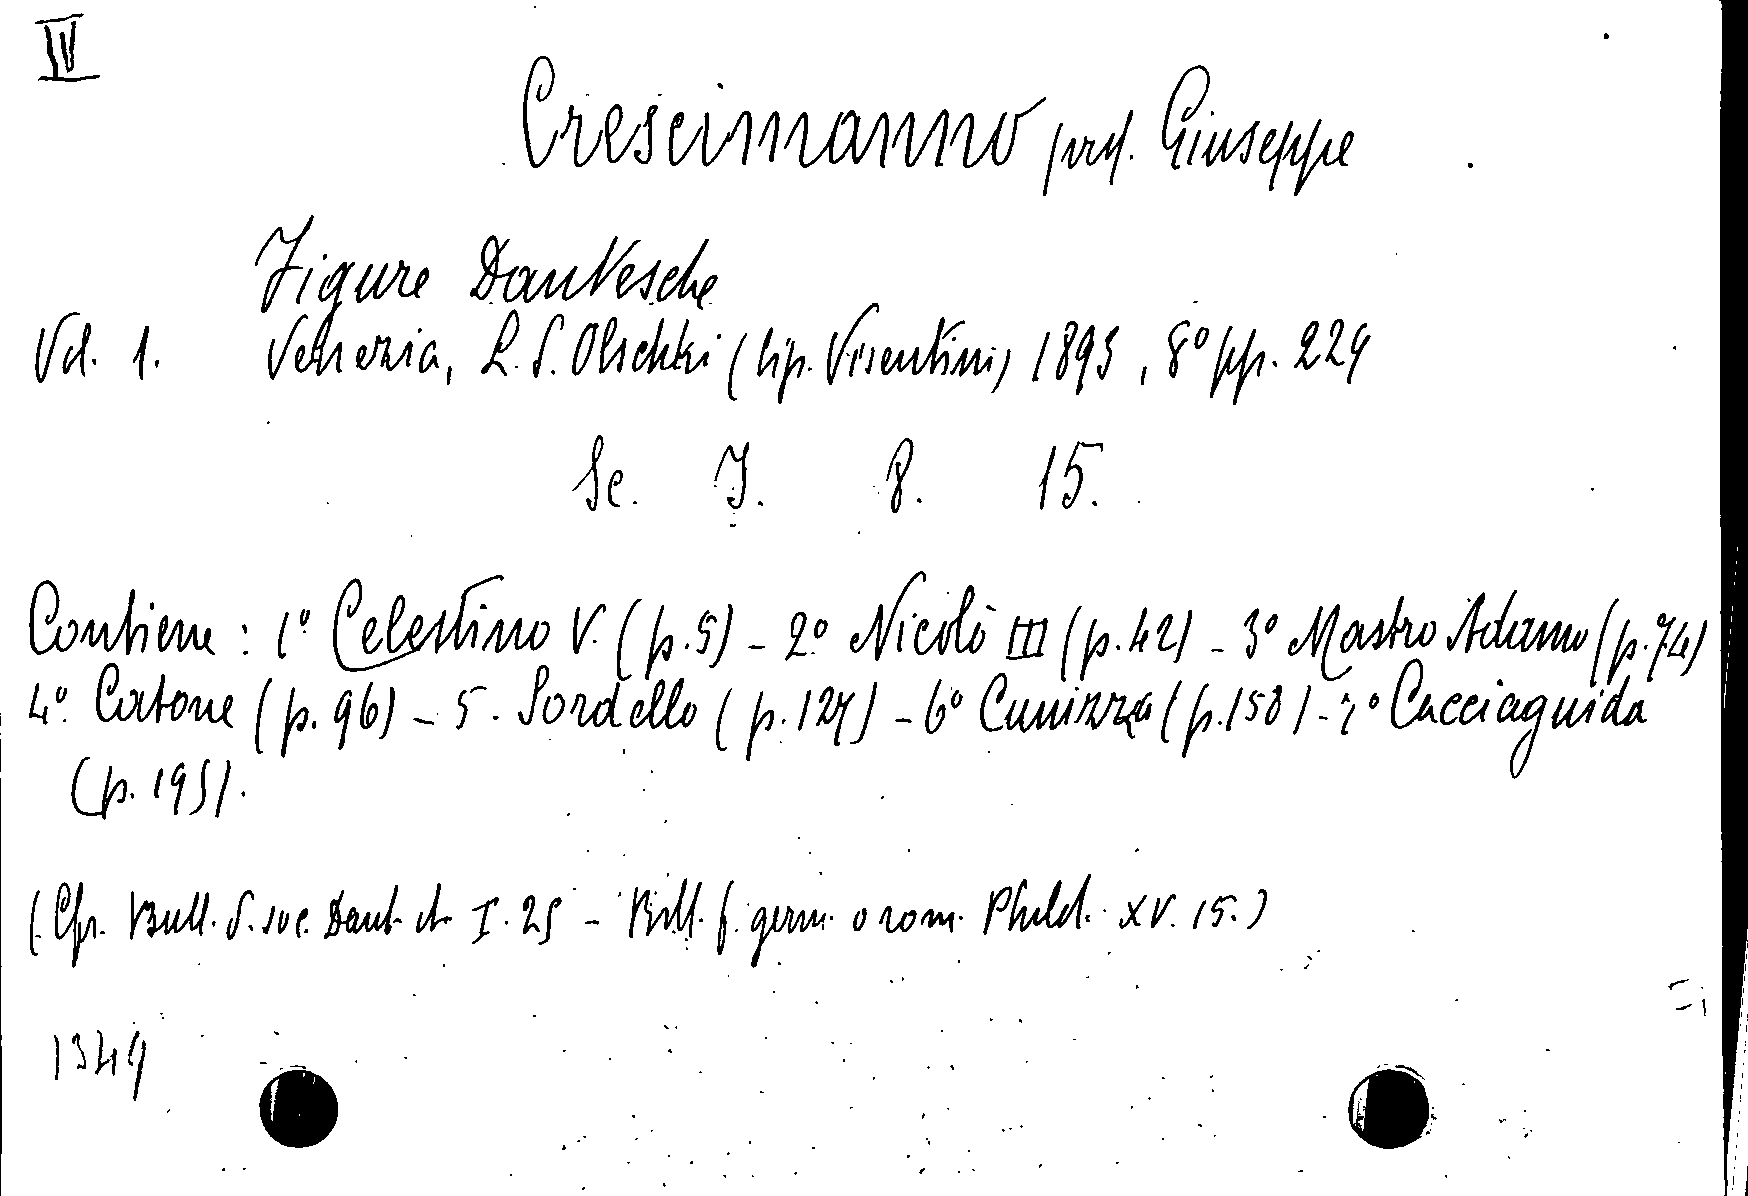 IV
Crescimanno prof. Giuseppe
Figure Dantesche
Vol. 1. Venezia, L. S. Olschki (tip. Visentini) 1893, 8° pp. 229
Sc. I. 8. 15.
Contiene: 1° Celestino V. (p. 5) - 2° Nicolò III (p. 42) - 3° Mastro Adamo (p. 74)
4°. Catone (p. 96) - 5. Sordello (p. 127) - 6° Cunizza (p. 158) - 7° Cacciaguida
(p. 195).
(Cfr. Bull. d. soc. Dant. it. I. 25 - f. germ. o rom. Philol. XV. 15.)
1349